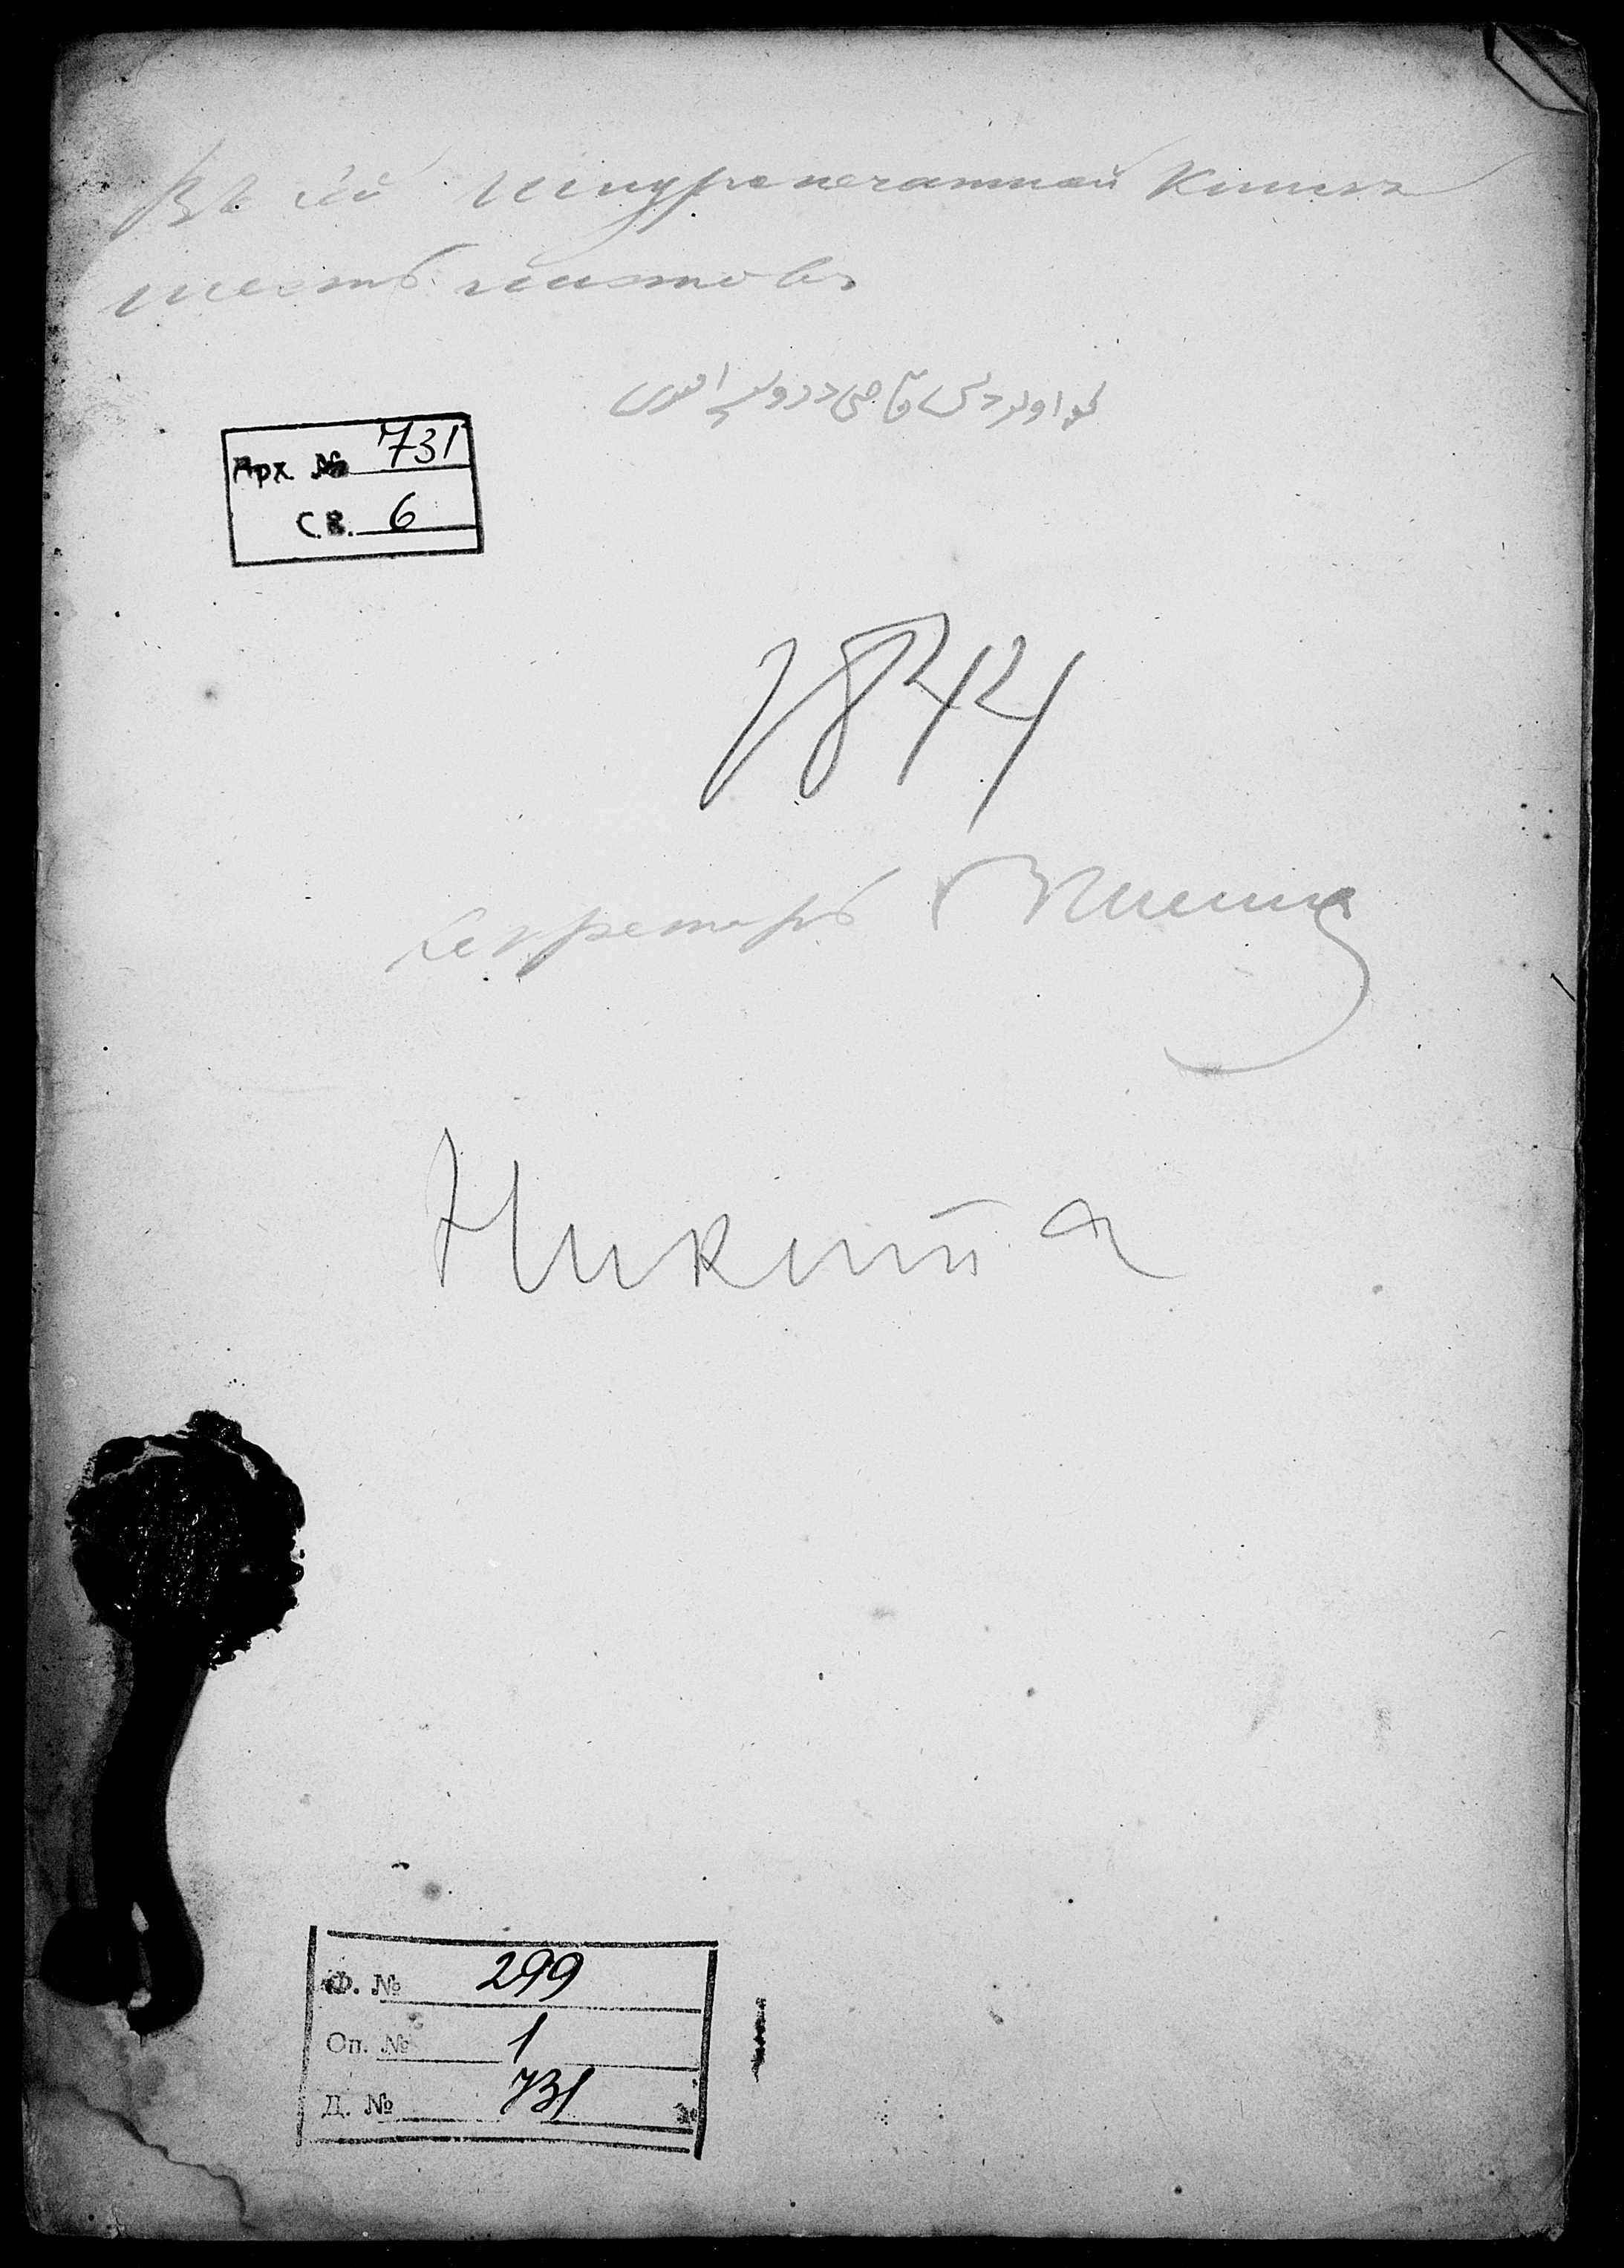 Въ сей шнуропечатной Книгѣ
шесть листовъ
Арх. № 731
Св. 6
1844
Секретарь
Никита
Ф. № 299
Оп. № 1
Д. № 731